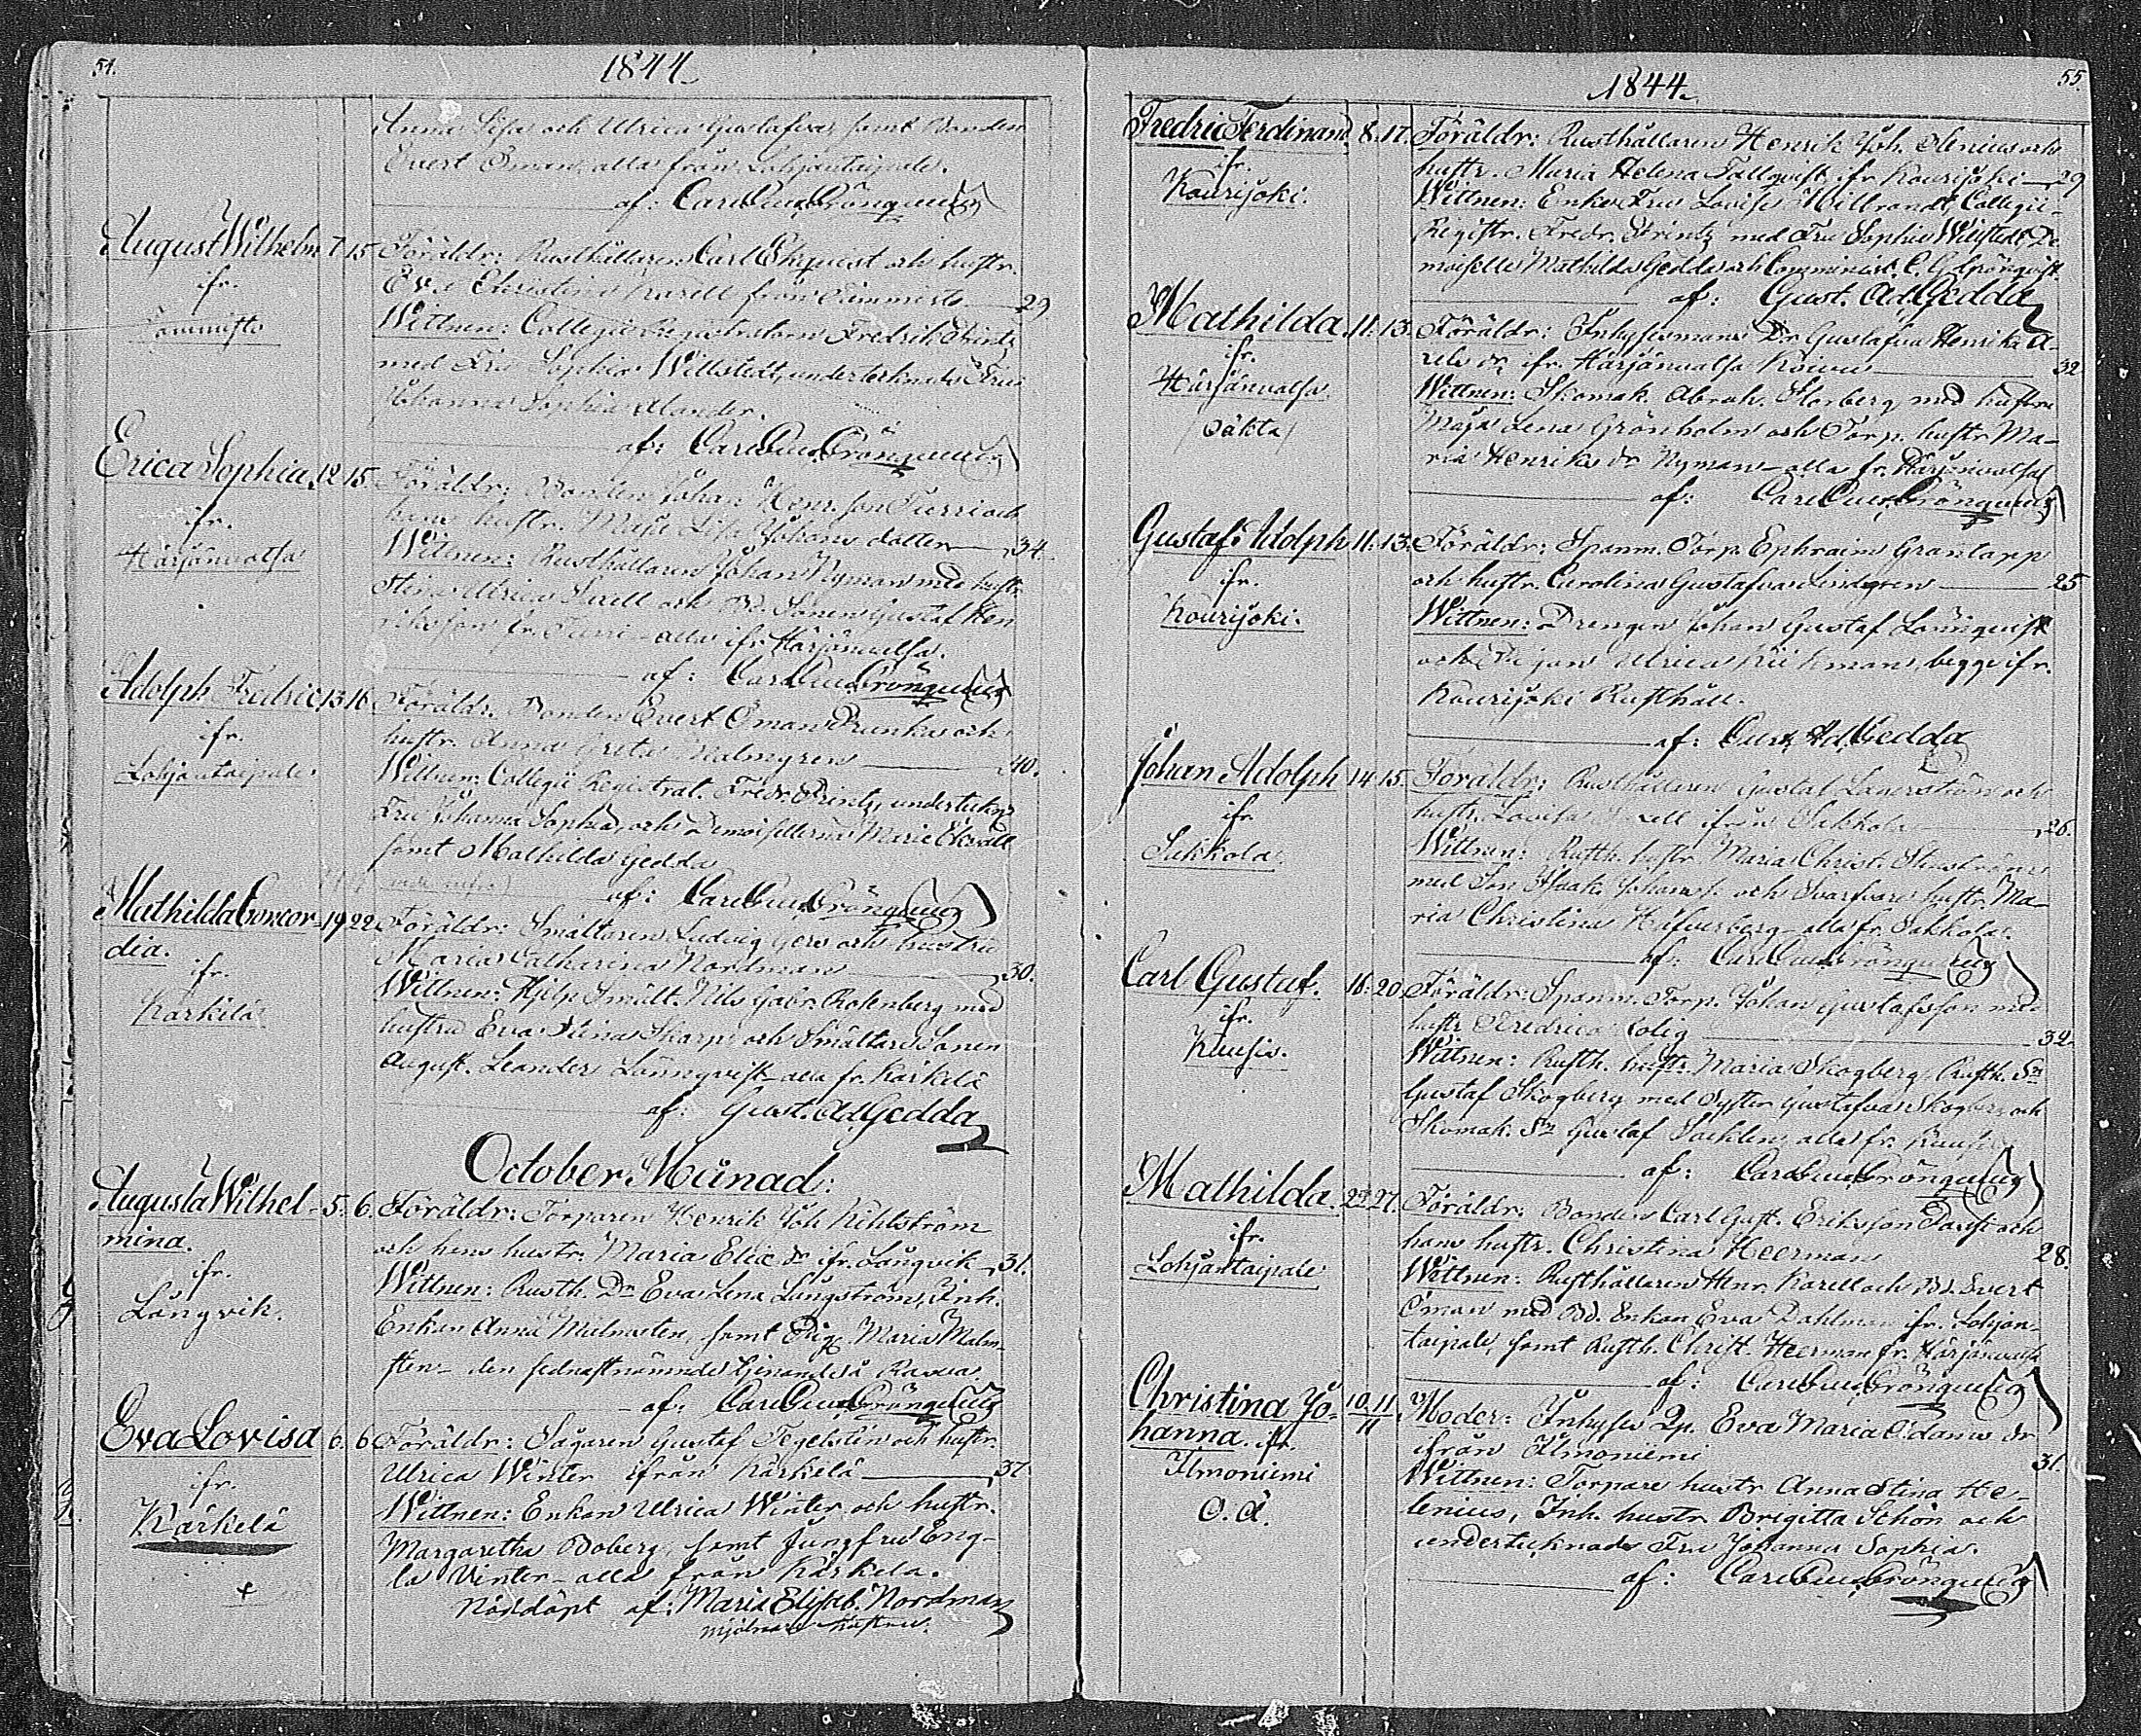 54.
1844
Anna Lisa och Ulrica Gustafva, samt Bonden
Evert Öman, alla från Lohjantaipale.
af: Carl Gust. Grönqvist
August Wilhelm 7. 15.
ifr.
Föräldr: Rusthållaren Carl Ekqvist och hustr.
Eva Christina Karell från 29
Wittnen: Collegii Registratorn Fredrik Printz
med Fru Sophia Willstedt, undertecknads Fru
Johanna Sophia Alander.
af: Carl Gust. Grönqvist
Erica Sophia. 12. 15.
ifr.
Härjänvatsa
Föräldr: Bonden Johan Henr. son Turri och
hans hustr. Maja Lisa Johans dotter 34.
Wittnen: Rusthållaren Johan Nyman med hustr.
Stina Ulrica och Bd. Sonen Gustaf Hen
riksson fr. Turri - alla ifr. Härjänvatsa.
af: Carl Gust. Grönqvist
Adolph Fredric 13 16
ifr.
Lohjantaipale
Föräldr. Bonden Evert Öman och
hustr. Anna Greta Malmgren 40.
Wittnen: Collegii Registrat. Fredr. Printz, undertekn.
Fru Johanna Sophia, och Demoisellerna Marie Ekvall
samt Mathilda Gedda
af: Carl Gust. Grönqvist
Mathilda Concor- 19 22
dia.
ifr.
Kärkelä
Föräldr: Smältaren Ludvig Gers och hustru
Maria Catharina Nordman 30.
Wittnen: Hjelp Smält. Nils Gabr. Rosenberg med
hustru Eva Stina Skarp och Smältar Sonen
August. Leander Lönnqvist - alla fr. Kärkelä
af: Gust. Ad Gedda
October Månad:
Augusta Wilhel- 5. 6.
mina.
ifr.
Långvik.
Föräldr: Torparen Henrik Joh Kihlström
och hans hustr. Maria Elie dr ifr. Långvik 31.
Wittnen: Rusth. Dr Eva Lena Lungström, Inh.
Enkan Anna Malmsten, samt Pig. Maria Malm-
sten - den sednastnämnde tjenande på
af: Carl Gust. Grönqvist
Eva Lovisa 6. 6
ifr.
Kärkelä
+
Föräldr: Sågaren Gustaf Tegelsten och hustr.
Ulrica Winter ifrån Kärkelä 37
Wittnen: Enkan Ulrica Winter och hustr.
Margaretha Boberg, samt Jungfru Eng-
la Winter - alla från Kärkelä.
Nöddöpt af: Maria Elisab. Nordman
mjölnare hustru.
55.
1844.
Fredric Ferdinand. 8. 17.
ifr.
Kourijoki.
Föräldr: Rusthållaren Henrik Joh. Alenius och
hustr. Maria Helena Tallqvist ifr. Kourijoki 29
Wittnen: Enke Fru Lovisa Hillbrandt, Collegii-
Registr. Fredr. Printz med Fru Sophia Willstedt, De
moiselle Mathilda Gedda och Comminist. C. G. Grönqvist
af: Gust. Ad. Gedda
Mathilda. 11. 13.
ifr.
Härjänvatsa.
/oäkta/
Föräldr: Inhysesmans Dr. Gustafva Henrika A-
rels dr. ifr. Härjänvatsa Koivu 32
Wittnen: Skomak. Abrah. Storberg med hustru
Maja Lena Grönholm och Torp. hustr. Ma-
ria Henriks dr. Nyman - alla fr. Härjänvatsa
af: Carl Gust. Grönqvist
Gustaf Adolph 11. 13.
ifr.
Kourijoki.
Föräldr: Spanm. Torp. Ephraim Grantapp
och hustr. Carolina Gustafva Lindgren 25
Wittnen: Drengen Johan Gustaf Lönnqvist
och Pigan Ulrica begge ifr.
Kourijoki Rusthåll.
af: Gust. Ad. Gedda
Johan Adolph 14. 15.
ifr.
Sakkola.
Föräldr: Rusthållaren Gustaf Lagerström och
hustr. Lovisa ifrån Sakkola 26.
Wittnen: Rusth. hustr. Maria Christ.
med Son Isaak Johans s. och Svarfvare hustr. Ma-
ria Christina Hafverberg - alla fr. Sakkola.
af: Carl Gust. Grönqvist
Carl Gustaf. 18. 20
ifr.
Kuusia.
Föräldr: Spanm. Torp. Johan Gustafsson med
hustr Fredrica 32.
Wittnen: Rusth. hustr. Maria Skogberg, Rusth. Sn
Gustaf Skogberg med Syster Gustafva Skogberg och
Skomak. Sn Gustaf Sacklen, alla fr. Kuusia
af: Carl Gust. Grönqvist
Mathilda. 27.
ifr.
Lohjantaipale
Föräldr: Bonden Carl Gust. Eriksson och
hans hustr. Christina Heerman 28.
Wittnen: Rusthållaren Henr. Karell och Bd. Evert
Öman med Bd. Enkan Eva Dahlman ifr. Lohjan-
taipale, samt Rusth. Christ. Heerman fr. Härjänvatsa
af: Carl Gust. Grönqvist
Christina Jo- 10. 11.
hanna. ifr. 11
Ilmoniemi
O. ä.
Moder: Inhyses Qp. Eva Maria Adams dr
ifrån Ilmoniemi 31.
Wittnen: Torpare hustr. Anna Stina He-
lenius, Inh. hustr. Brigitta Schön och
undertecknads Fru Johanna Sophia.
af: Carl Gust. Grönqvist